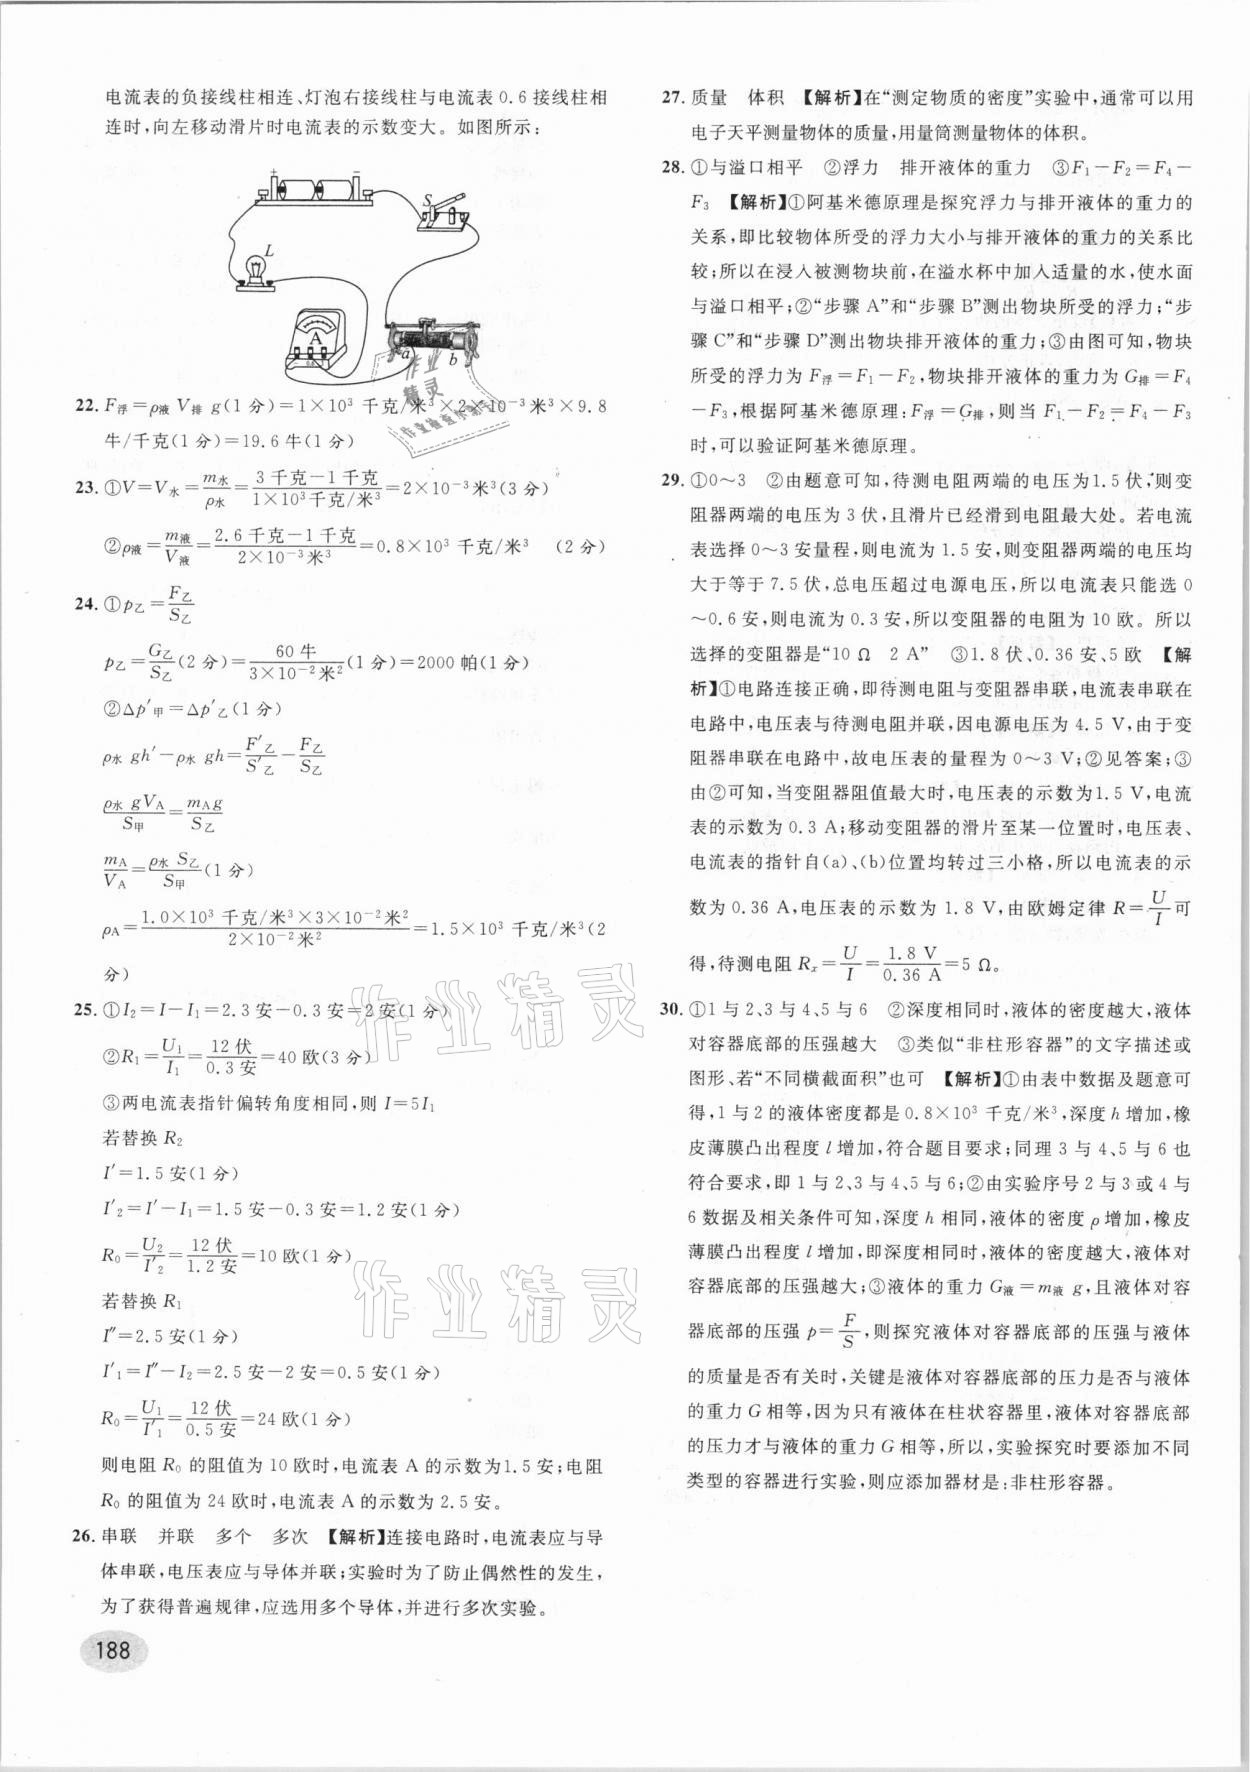 电流表的负接线柱相连、灯泡右接线柱与电流表0.6接线柱相
连时,向左移动滑片时电流表的示数变大。如图所示:
+ −
S
L
A
a b
22. F浮=ρ液 V排 g(1分)=1×10³ 千克/米³×2×10⁻³米³×9.8
牛/千克(1分)=19.6牛(1分)
23. ①V=V水=m水/ρ水=(3千克−1千克)/(1×10³千克/米³)=2×10⁻³米³(3分)
②ρ液=m液/V液=(2.6千克−1千克)/(2×10⁻³米³)=0.8×10³ 千克/米³ (2分)
24. ①p乙=F乙/S乙
p乙=G乙/S乙(2分)=60牛/(3×10⁻²米²)(1分)=2000帕(1分)
②Δp′甲=Δp′乙(1分)
ρ水 gh′−ρ水 gh=F′乙/S′乙−F乙/S乙
ρ水 gVA/S甲=mAg/S乙
mA/VA=ρ水 S乙/S甲(1分)
ρA=(1.0×10³ 千克/米³×3×10⁻²米²)/(2×10⁻²米²)=1.5×10³ 千克/米³(2
分)
25. ①I₂=I−I₁=2.3安−0.3安=2安(1分)
②R₁=U₁/I₁=12伏/0.3安=40欧(3分)
③两电流表指针偏转角度相同,则 I=5I₁
若替换 R₂
I′=1.5安(1分)
I′₂=I′−I₁=1.5安−0.3安=1.2安(1分)
R₀=U₂/I′₂=12伏/1.2安=10欧(1分)
若替换 R₁
I″=2.5安(1分)
I′₁=I″−I₂=2.5安−2安=0.5安(1分)
R₀=U₁/I′₁=12伏/0.5安=24欧(1分)
则电阻 R₀ 的阻值为10欧时,电流表 A 的示数为1.5安;电阻
R₀ 的阻值为24欧时,电流表 A 的示数为2.5安。
26. 串联 并联 多个 多次 【解析】连接电路时,电流表应与导
体串联,电压表应与导体并联;实验时为了防止偶然性的发生,
为了获得普遍规律,应选用多个导体,并进行多次实验。
188
27. 质量 体积 【解析】在“测定物质的密度”实验中,通常可以用
电子天平测量物体的质量,用量筒测量物体的体积。
28. ①与溢口相平 ②浮力 排开液体的重力 ③F₁−F₂=F₄−
F₃ 【解析】①阿基米德原理是探究浮力与排开液体的重力的
关系,即比较物体所受的浮力大小与排开液体的重力的关系比
较;所以在浸入被测物块前,在溢水杯中加入适量的水,使水面
与溢口相平;②“步骤 A”和“步骤 B”测出物块所受的浮力;“步
骤 C”和“步骤 D”测出物块排开液体的重力;③由图可知,物块
所受的浮力为 F浮=F₁−F₂,物块排开液体的重力为 G排=F₄
−F₃,根据阿基米德原理:F浮=G排,则当 F₁−F₂=F₄−F₃
时,可以验证阿基米德原理。
29. ①0~3 ②由题意可知,待测电阻两端的电压为1.5伏,则变
阻器两端的电压为3伏,且滑片已经滑到电阻最大处。若电流
表选择0~3安量程,则电流为1.5安,则变阻器两端的电压均
大于等于7.5伏,总电压超过电源电压,所以电流表只能选0
~0.6安,则电流为0.3安,所以变阻器的电阻为10欧。所以
选择的变阻器是“10 Ω 2 A” ③1.8伏、0.36安、5欧 【解
析】①电路连接正确,即待测电阻与变阻器串联,电流表串联在
电路中,电压表与待测电阻并联,因电源电压为4.5 V,由于变
阻器串联在电路中,故电压表的量程为0~3 V;②见答案;③
由②可知,当变阻器阻值最大时,电压表的示数为1.5 V,电流
表的示数为0.3 A;移动变阻器的滑片至某一位置时,电压表、
电流表的指针自(a)、(b)位置均转过三小格,所以电流表的示
数为0.36 A,电压表的示数为1.8 V,由欧姆定律 R=U/I可
得,待测电阻 Rₓ=U/I=1.8 V/0.36 A=5 Ω。
30. ①1与2、3与4、5与6 ②深度相同时,液体的密度越大,液体
对容器底部的压强越大 ③类似“非柱形容器”的文字描述或
图形、若“不同横截面积”也可 【解析】①由表中数据及题意可
得,1与2的液体密度都是0.8×10³ 千克/米³,深度 h 增加,橡
皮薄膜凸出程度 l 增加,符合题目要求;同理3与4、5与6也
符合要求,即1与2、3与4、5与6;②由实验序号2与3或4与
6数据及相关条件可知,深度 h 相同,液体的密度 ρ 增加,橡皮
薄膜凸出程度 l 增加,即深度相同时,液体的密度越大,液体对
容器底部的压强越大;③液体的重力 G液=m液 g,且液体对容
器底部的压强 p=F/S,则探究液体对容器底部的压强与液体
的质量是否有关时,关键是液体对容器底部的压力是否与液体
的重力 G 相等,因为只有液体在柱状容器里,液体对容器底部
的压力才与液体的重力 G 相等,所以,实验探究时要添加不同
类型的容器进行实验,则应添加器材是:非柱形容器。
作业精灵
作业精灵
作业精灵